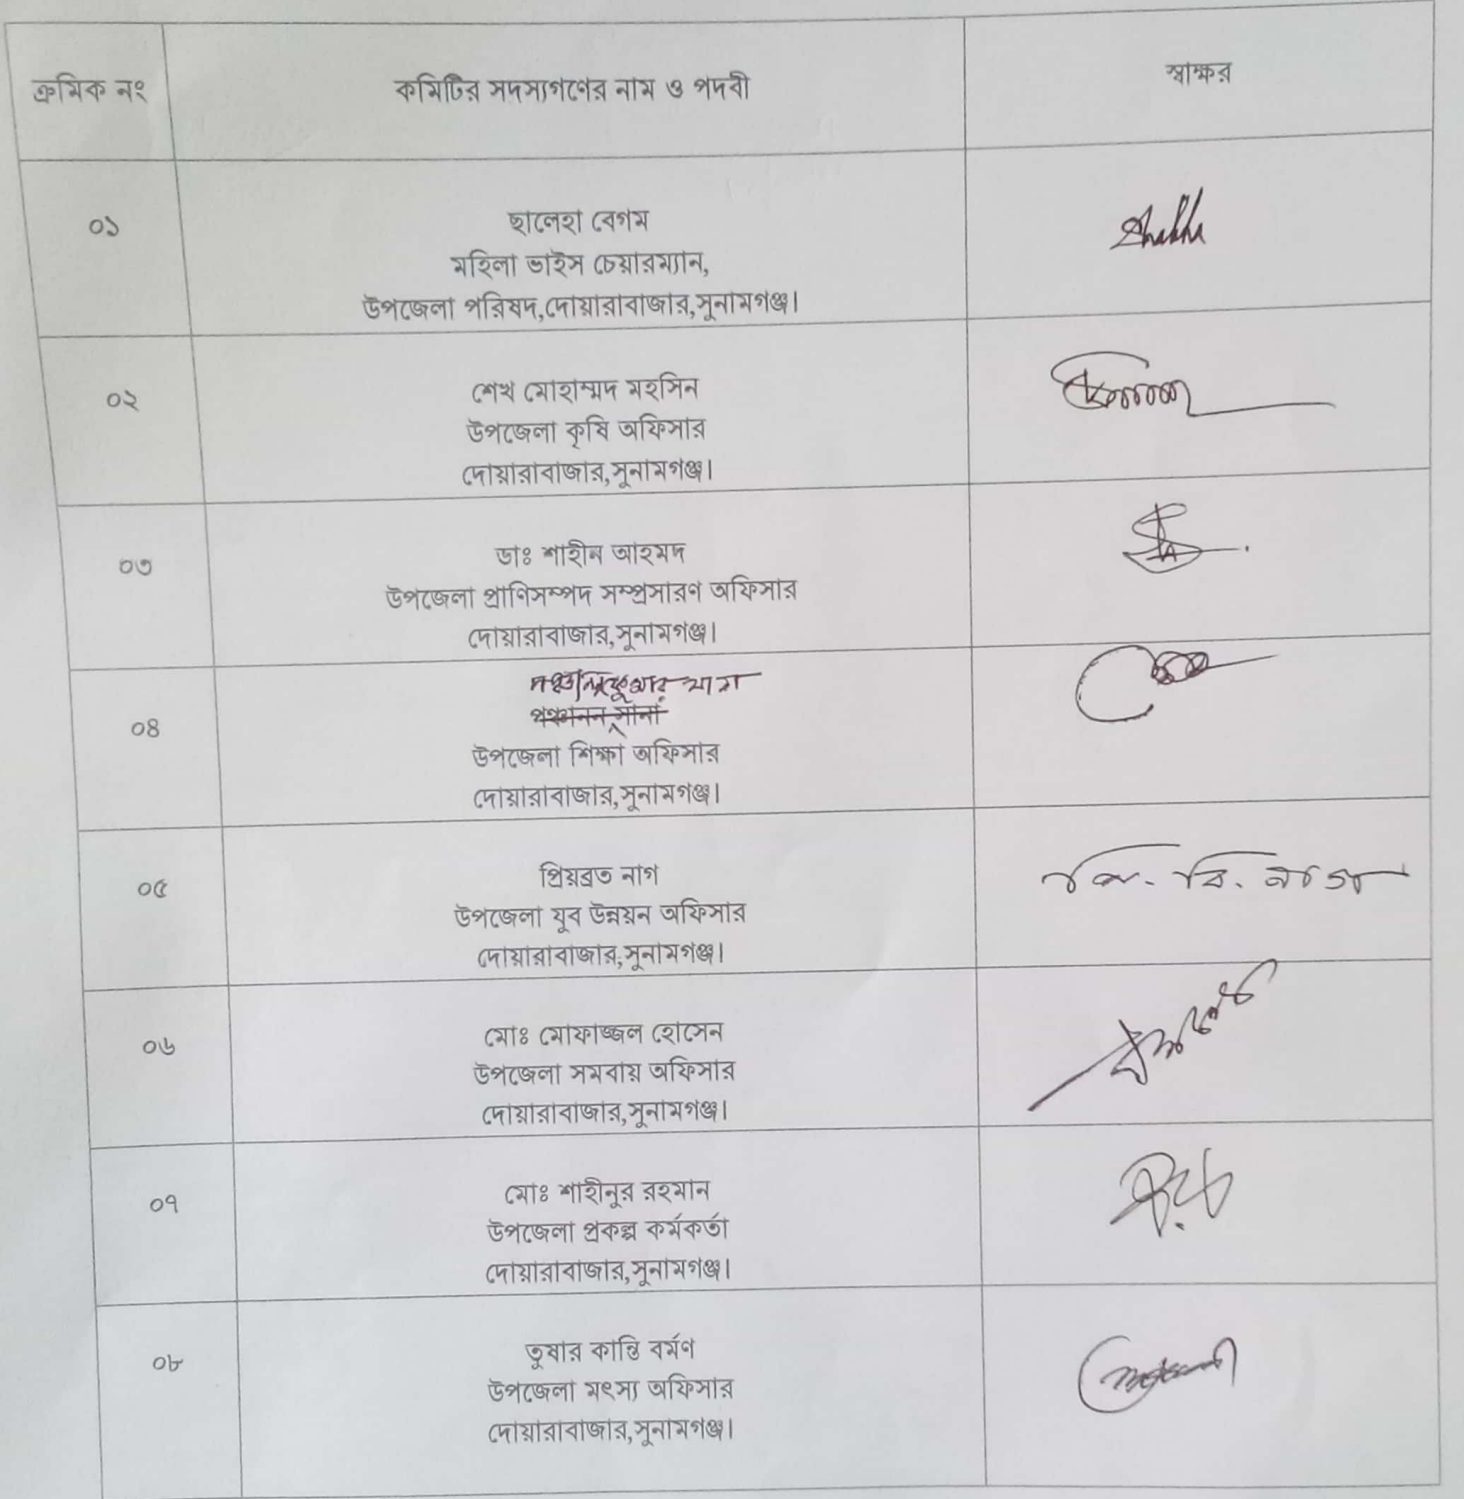 ক্রমিক নং কমিটির সদস্যগণের নাম ও পদবী স্বাক্ষর
০১ ছালেহা বেগম
মহিলা ভাইস চেয়ারম্যান,
উপজেলা পরিষদ,দোয়ারাবাজার,সুনামগঞ্জ।
০২ শেখ মোহাম্মদ মহসিন
উপজেলা কৃষি অফিসার
দোয়ারাবাজার,সুনামগঞ্জ।
০৩ ডাঃ শাহীন আহমদ
উপজেলা প্রাণিসম্পদ সম্প্রসারণ অফিসার
দোয়ারাবাজার,সুনামগঞ্জ।
পঞ্চানন সানা
০৪ উপজেলা শিক্ষা অফিসার
দোয়ারাবাজার,সুনামগঞ্জ।
০৫ প্রিয়ব্রত নাগ পি. বি. নাগ
উপজেলা যুব উন্নয়ন অফিসার
দোয়ারাবাজার,সুনামগঞ্জ।
০৬ মোঃ মোফাজ্জল হোসেন
উপজেলা সমবায় অফিসার
দোয়ারাবাজার,সুনামগঞ্জ।
০৭ মোঃ শাহীনুর রহমান
উপজেলা প্রকল্প কর্মকর্তা
দোয়ারাবাজার,সুনামগঞ্জ।
০৮ তুষার কান্তি বর্মণ
উপজেলা মৎস্য অফিসার
দোয়ারাবাজার,সুনামগঞ্জ।